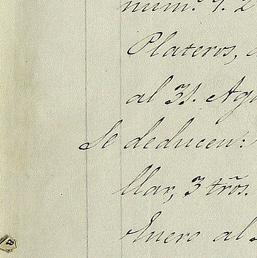 núm.º 1. 2
Plateros,
al 31. Ag
Se deducen:
llar, 3 tr̃os.
Enero al